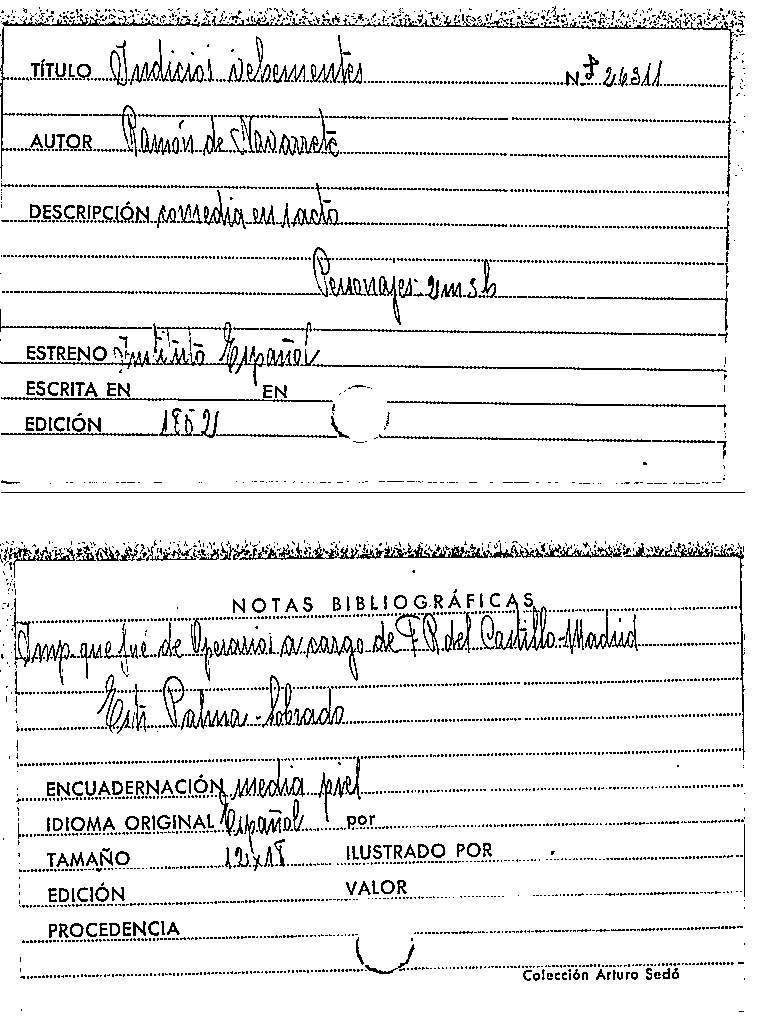 TÍTULO Indicios vehementes N.º 26311
AUTOR Ramón de Navarrete
DESCRIPCIÓN comedia en 1 acto
Personajes: 2m 3h
ESTRENO Instituto Español
ESCRITA EN EN
EDICIÓN 1852
NOTAS BIBLIOGRÁFICAS
Imp. que fué de Operarios a cargo de F. R. del Castillo-Madrid
Palma-Sobrado
ENCUADERNACIÓN media piel
IDIOMA ORIGINAL Español por
TAMAÑO 12x18 ILUSTRADO POR
EDICIÓN VALOR
PROCEDENCIA
Colección Arturo Sedó